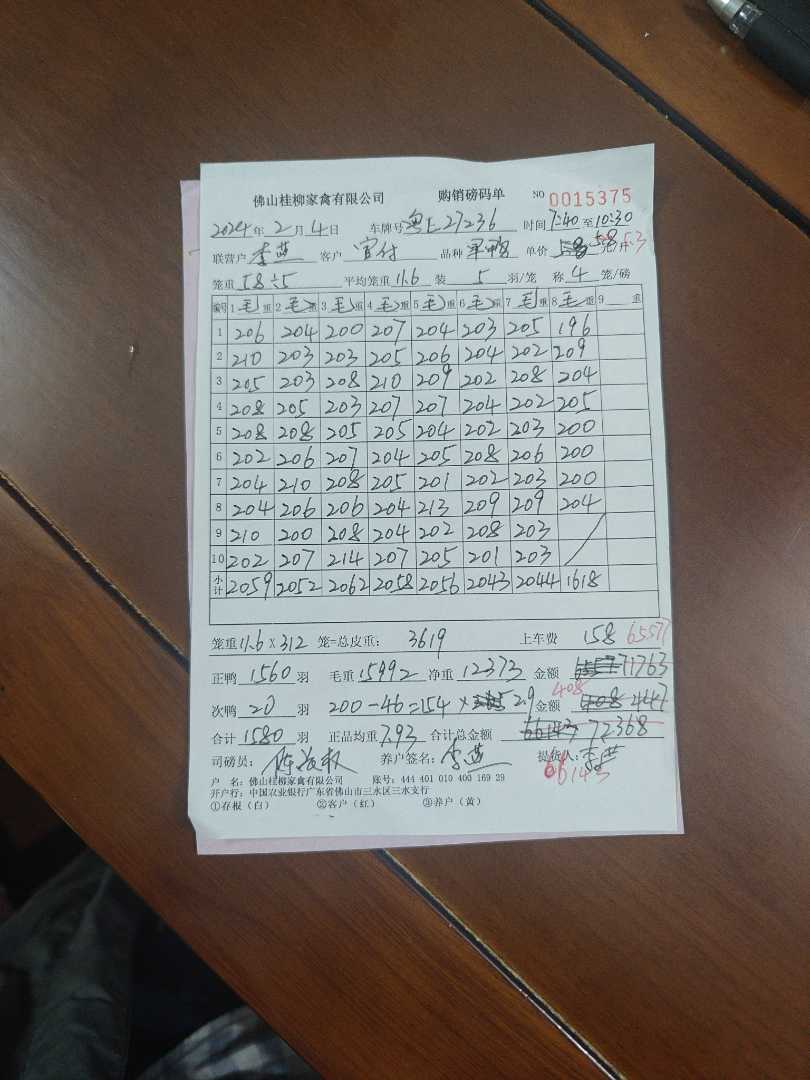 佛山桂柳家禽有限公司 购销磅码单 NO 0015375
2024年 2月 4日 车牌号 粤E27236 时间 7:40 至 10:30
联营户 李燕 客户 品种 单价 5.8 元/斤 5.3
笼重 58÷5 平均笼重 11.6 装 5 羽/笼 称 4 笼/磅
编号 1 毛重 2 毛重 3 毛重 4 毛重 5 毛重 6 毛重 7 毛重 8 毛重 9 重
1 206 204 200 207 204 203 205 196
2 210 203 203 205 206 204 202 209
3 205 203 208 210 209 202 208 204
4 208 205 203 207 207 204 202 205
5 208 208 205 205 204 202 203 200
6 202 206 207 204 205 208 206 200
7 204 210 208 205 201 202 203 200
8 204 206 206 204 213 209 209 204
9 210 200 208 204 202 208 203
10 202 207 214 207 205 201 203
小计 2059 2052 2062 2058 2056 2043 2044 1618
笼重 11.6 X 312 笼=总皮重: 3619 上车费 158 65577
正鸭 1560 羽 毛重 15992 净重 12373 金额 71763
次鸭 20 羽 200-46=154 × 2.9 金额 408 447
合计 1580 羽 正品均重 7.93 合计总金额 66143 72368
司磅员: 养户签名: 李燕 提货人: 李燕
66143
户 名: 佛山桂柳家禽有限公司 账号: 444 401 010 400 169 29
开户行: 中国农业银行广东省佛山市三水区三水支行
①存根(白) ②客户(红) ③养户(黄)